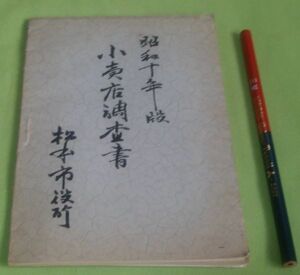 昭和十年版
小売店調査書
松本市役所